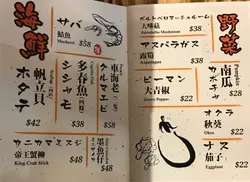 海鮮
サバ
鯖魚
Mackerel
$58
ホタテ
帆立貝
$42
シシャモ
多春魚
(四條)
$38
クルマエビ
車海老
(二隻)
$58
カニカマミスジ
帝王蟹柳
King Crab Stick
$48
墨魚仔
$38
野菜
ポルトベロマーシュルーム
大啡菇
Portobello Mushroom
$38
アスパラガス
露筍
Asparagus
$38
カボチャ
南瓜
$28
ピーマン
大青椒
Green Pepper
$22
オクラ
秋葵
Okra
$22
ナス
茄子
Eggplant
$22